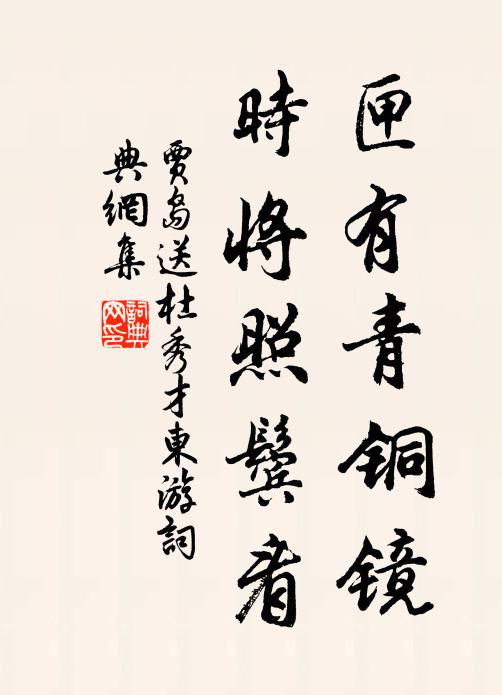 匣有青铜镜
時将照鬓看
賈島送杜秀才東游詞
典網集
詞典网印